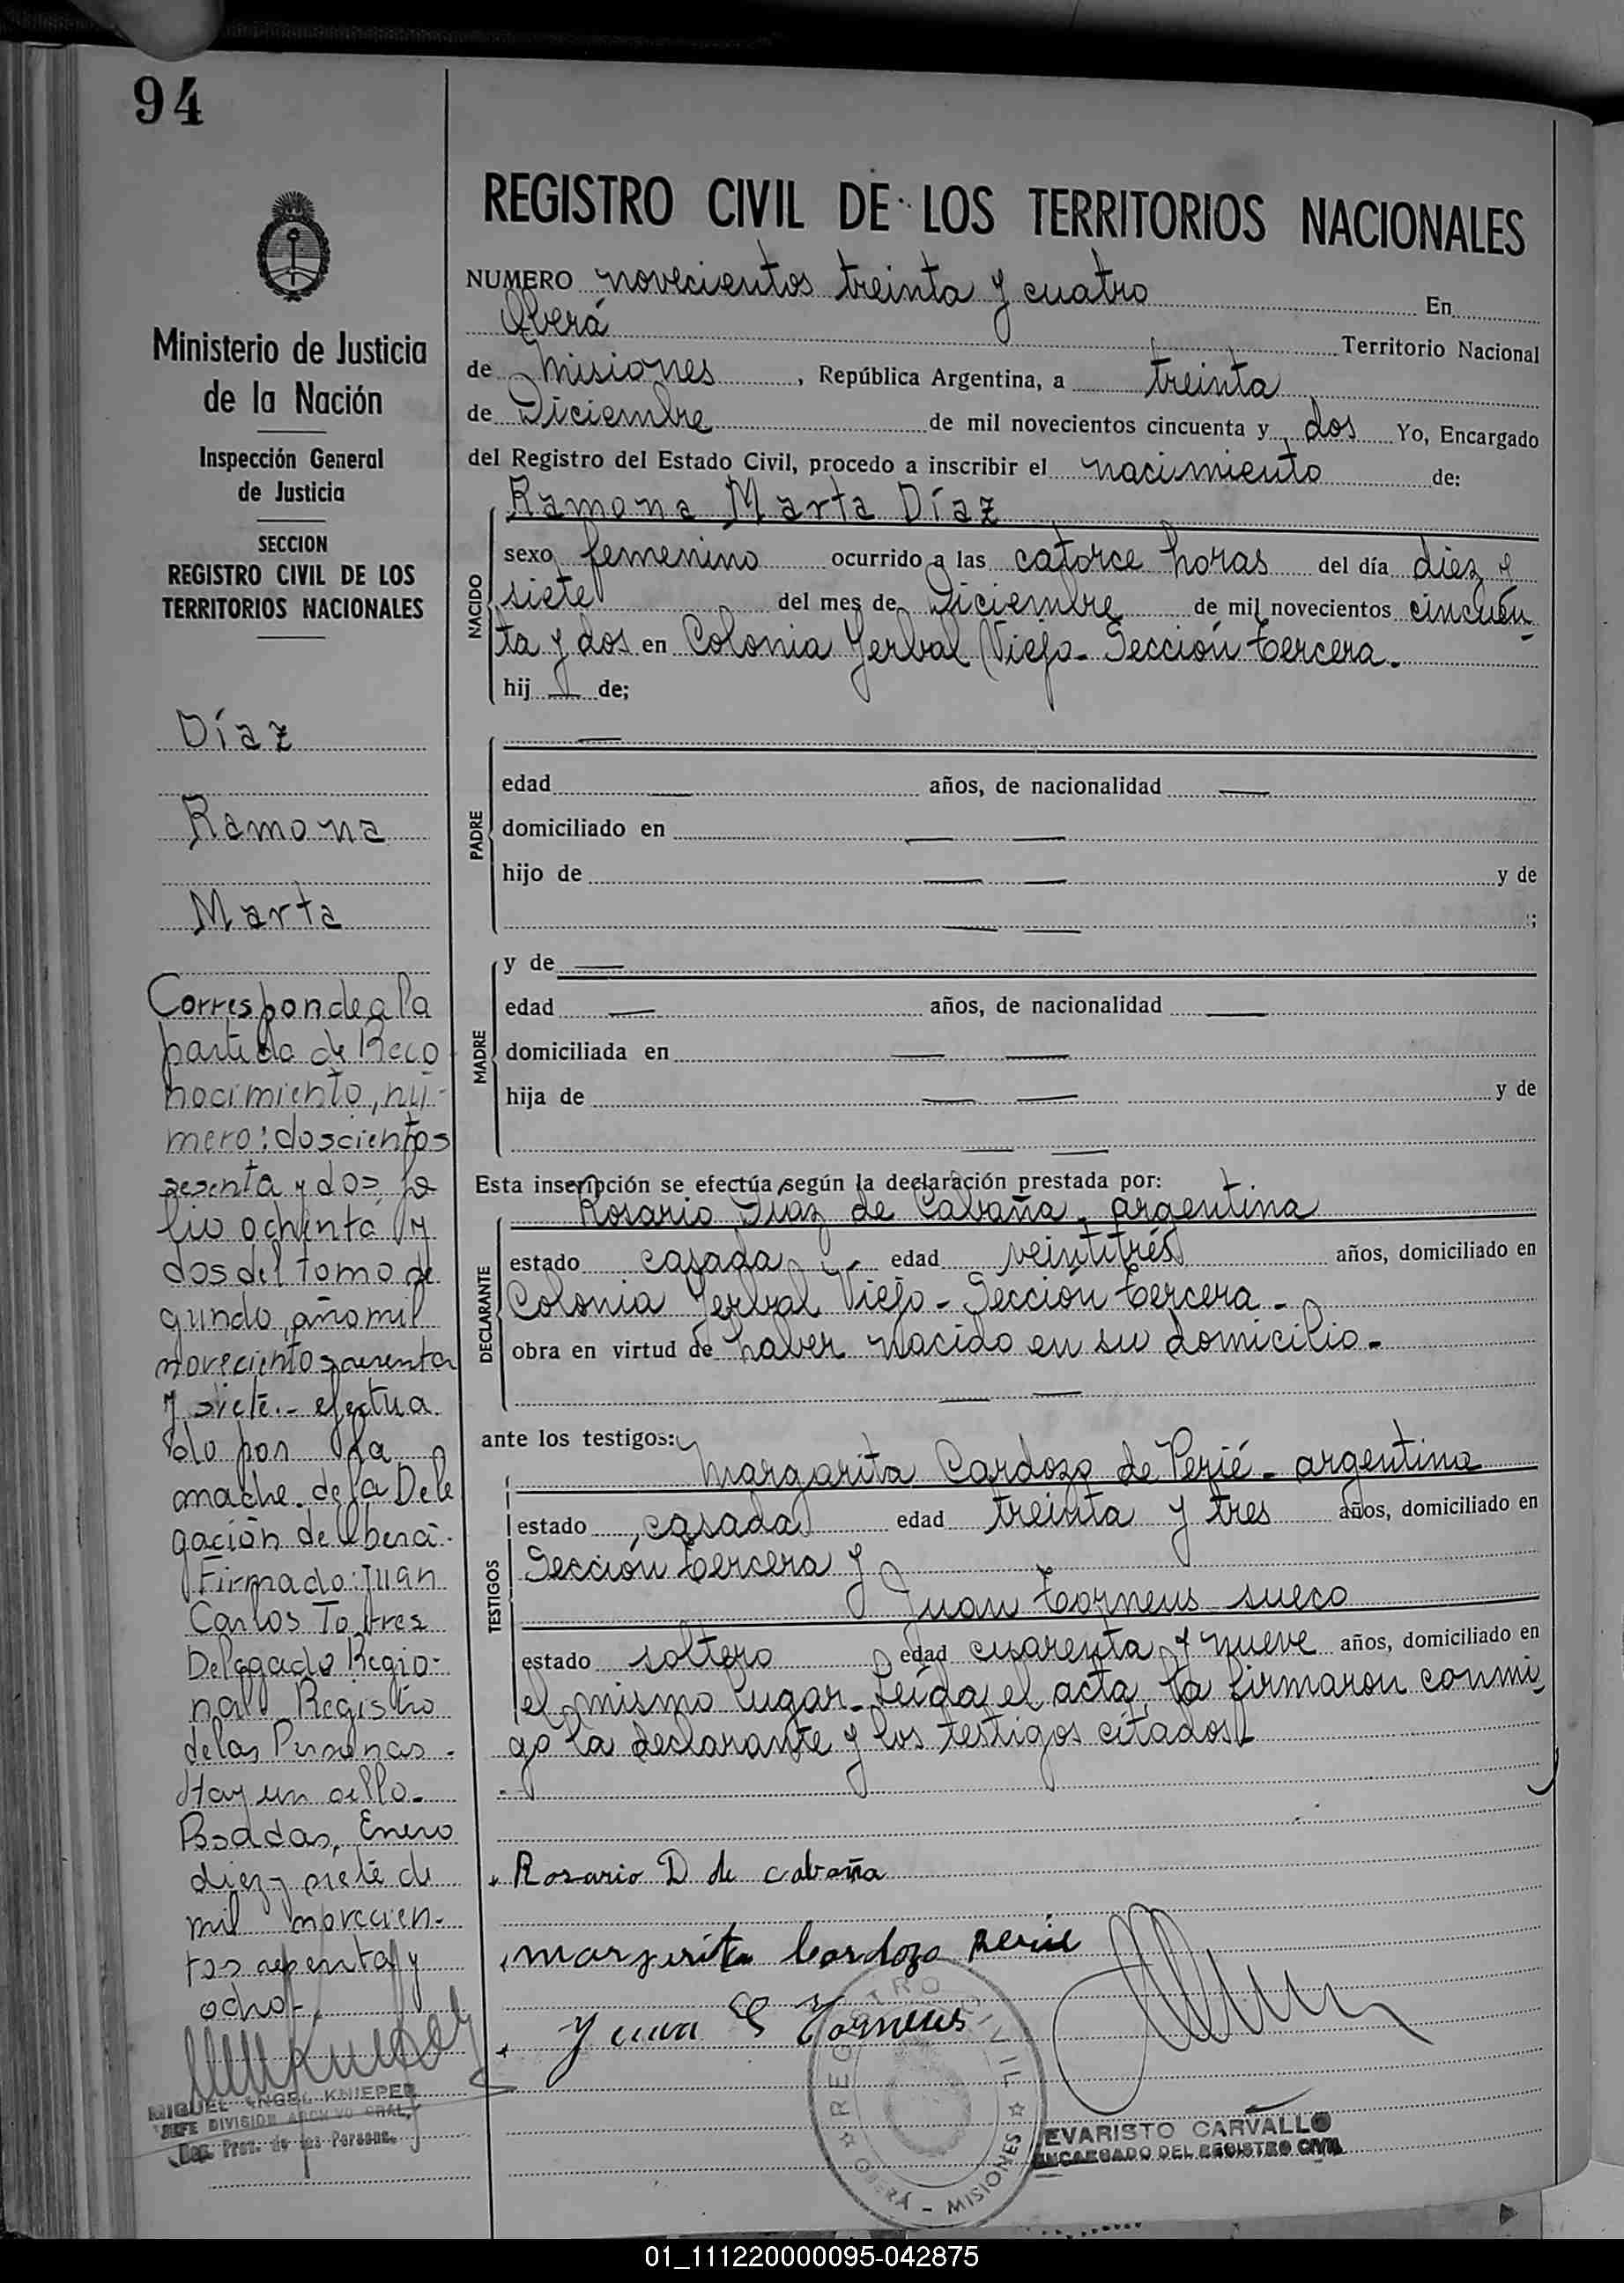 94
REGISTRO CIVIL DE LOS TERRITORIOS NACIONALES
Ministerio de Justicia
de la Nación
Inspección General
de Justicia
SECCION
REGISTRO CIVIL DE LOS
TERRITORIOS NACIONALES
Díaz
Ramona
Marta
Corresponde a la
partida de Reco
nocimiento, nú-
mero: doscientos
sesenta y dos fo
lio ochenta y
dos del tomo se
gundo, año mil
novecientos sesenta
y siete.- efectua
do por la
madre. de la Dele
gación de Oberá.-
Firmado: Juan
Carlos Torres
Delegado Regio-
nal Registro
de las Personas.-
Hay un sello.-
Posadas, Enero
diez y siete de
mil novecien-
tos sesenta y
ocho.-
MIGUEL ANGEL KNIEPER
JEFE DIVISION ARCHIVO GRAL.
Reg. Prov. de las Persons.
NUMERO novecientos treinta y cuatro En
Oberá Territorio Nacional
de Misiones, República Argentina, a treinta
de Diciembre de mil novecientos cincuenta y dos Yo, Encargado
del Registro del Estado Civil, procedo a inscribir el nacimiento de:
Ramona Marta Díaz
NACIDO
sexo femenino ocurrido a las catorce horas del día diez y
siete del mes de Diciembre de mil novecientos cincuen
ta y dos en Colonia Yerbal Viejo - Sección tercera.-
hij — de;
PADRE
—
edad — años, de nacionalidad —
domiciliado en — —
hijo de — — y de
— — ;
MADRE
y de —
edad — años, de nacionalidad —
domiciliada en — —
hija de — — y de
— —
Esta inscripción se efectúa según la declaración prestada por:
DECLARANTE
Rosario Díaz de Cabaña, argentina
estado casada edad veintitrés años, domiciliado en
Colonia Yerbal Viejo - Sección tercera -
obra en virtud de haber nacido en su domicilio.-
— —
ante los testigos:
TESTIGOS
Margarita Cardozo de Perié - argentina
estado casada edad treinta y tres años, domiciliado en
Sección tercera y
Juan Torneus sueco
estado soltero edad cuarenta y nueve años, domiciliado en
el mismo lugar - Leída el acta, la firmaron conmi
go la declarante y los testigos citados.-
Rosario D de cabaña
margarita Cardozo Perié
Juan E Torneus
REGISTRO CIVIL
OBERÁ - MISIONES
EVARISTO CARVALLO
ENCARGADO DEL REGISTRO CIVIL
01_111220000095-042875